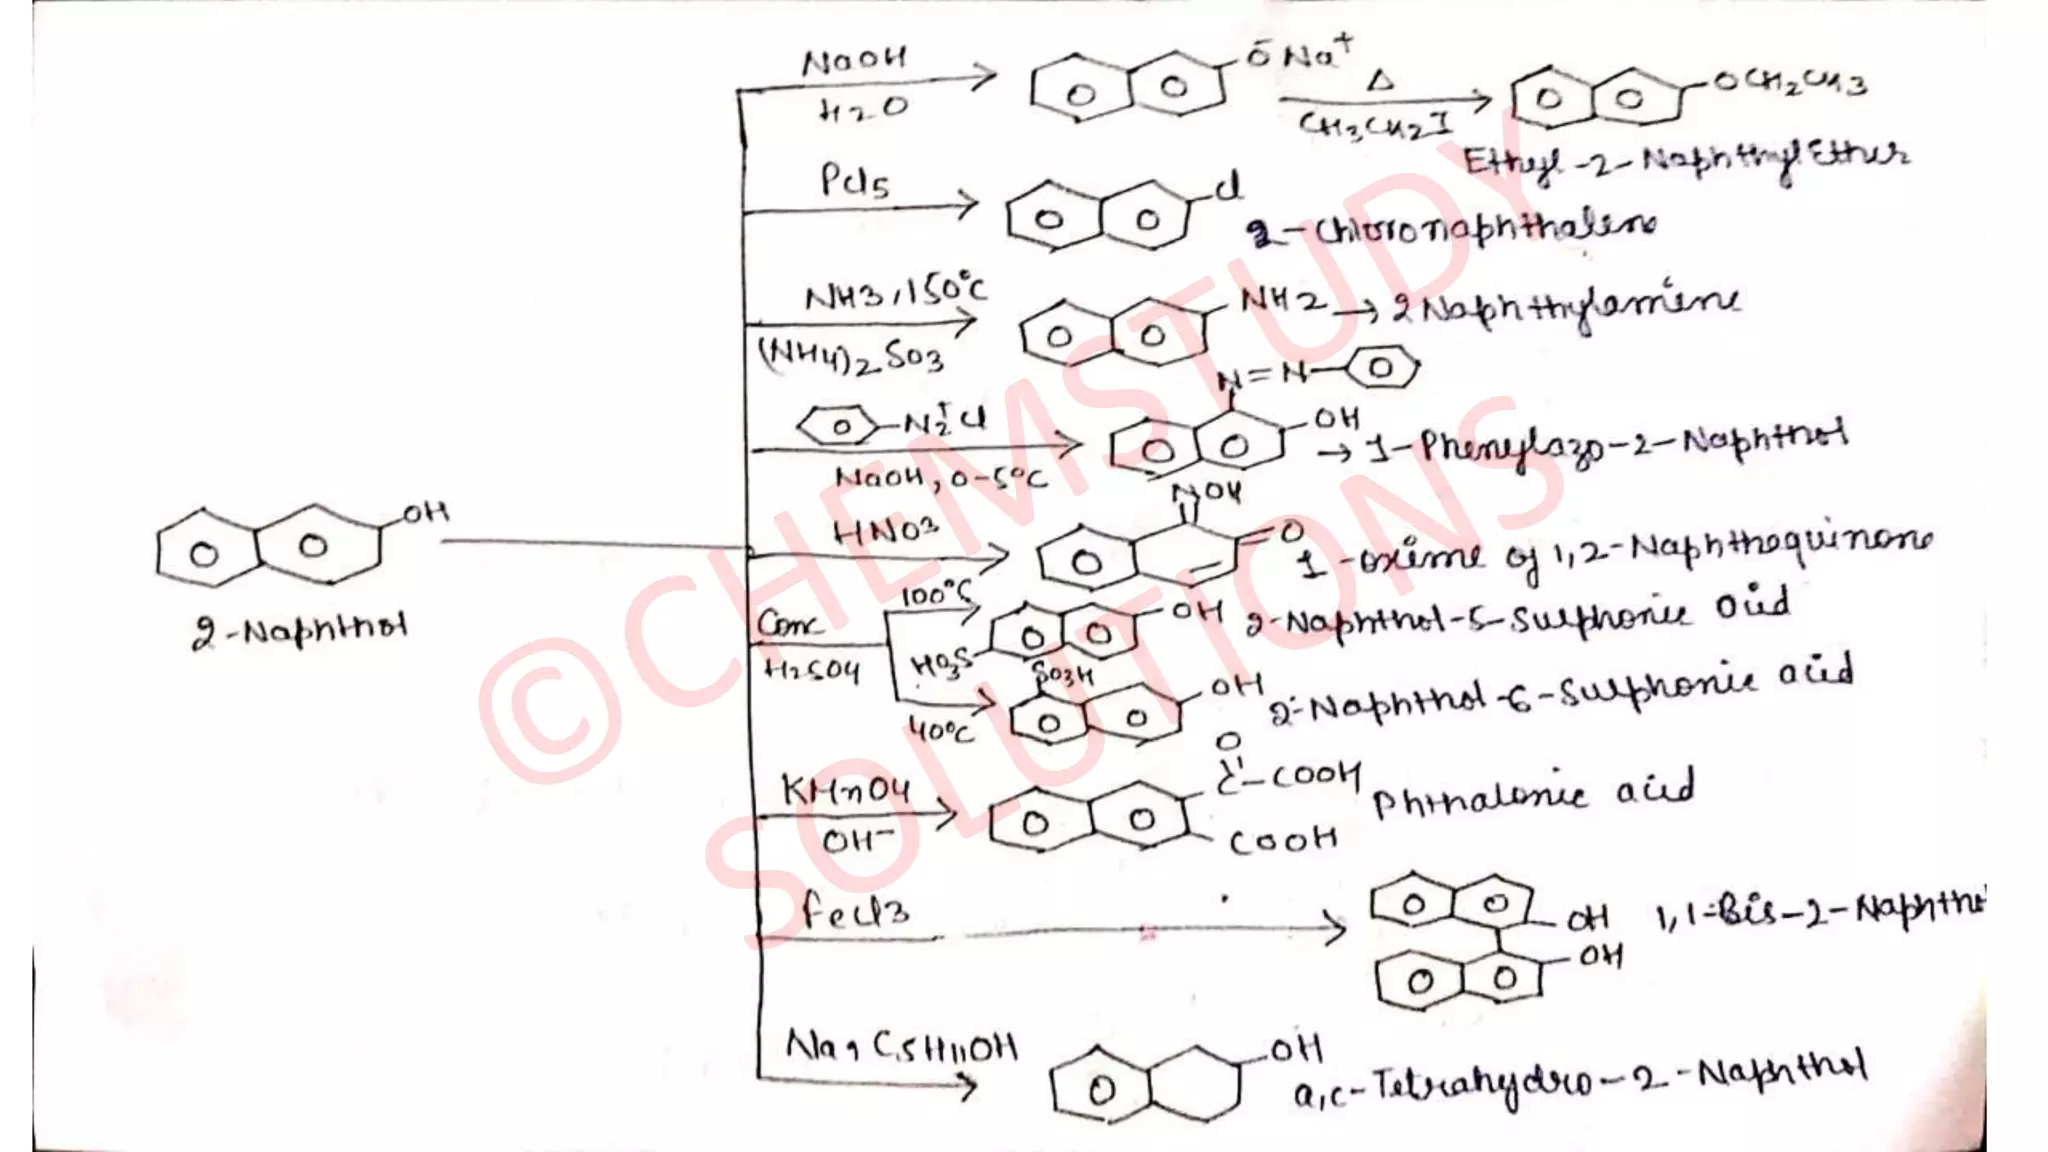 NaOH
H2O
ōNa+
Δ
CH3CH2I
OCH2CH3
Ethyl-2-Naphthyl Ether
PCl5
Cl
2-Chloronaphthalene
NH3, 150°C
(NH4)2SO3
NH2 → 2 Naphthylamine
N=N
N2+Cl
NaOH, 0-5°C
OH
→ 1-Phenylazo-2-Naphthol
HNO3
NOH
O
1-oxime of 1,2-Naphthoquinone
OH
2-Naphthol
Conc
H2SO4
100°C
HO3S
OH
2-Naphthol-5-Sulphonic acid
40°C
SO3H
OH
2-Naphthol-6-Sulphonic acid
KMnO4
OH-
O
C-COOH
COOH
Phthalonic acid
FeCl3
OH
OH
1,1-Bis-2-Naphtho
Na, C5H11OH
OH
a,c-Tetrahydro-2-Naphthol
©CHEMSTUDY
SOLUTIONS